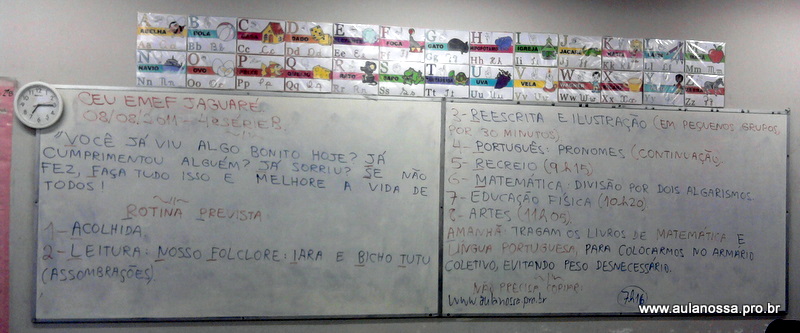 A
ABELHA
B
BOLA
Bb
C
Cc
D
DADO
Dd
E
Ee
F
FOCA
Ff
G
GATO
H
I
IGREJA
Mm
NAVIO
Nn
OVO
Oo
Pp
RATO
SAPO
UVA
VELA
CEU EMEF JAGUARÉ
08/08/2011 - 4ª SÉRIE B
"VOCÊ JÁ VIU ALGO BONITO HOJE? JÁ
CUMPRIMENTOU ALGUÉM? JÁ SORRIU? SE NÃO
FEZ, FAÇA TUDO ISSO E MELHORE A VIDA DE
TODOS!
ROTINA PREVISTA
1- ACOLHIDA
2- LEITURA: NOSSO FOLCLORE: IARA E BICHO TUTU
(ASSOMBRAÇÕES)
3- REESCRITA E ILUSTRAÇÃO (EM PEQUENOS GRUPOS,
POR 30 MINUTOS)
4- PORTUGUÊS: PRONOMES (CONTINUAÇÃO)
5- RECREIO (9h15)
6- MATEMÁTICA: DIVISÃO POR DOIS ALGARISMOS
7- EDUCAÇÃO FÍSICA (10h20)
8- ARTES (11h05)
AMANHÃ: TRAGAM OS LIVROS DE MATEMÁTICA E
LÍNGUA PORTUGUESA, PARA COLOCARMOS NO ARMÁRIO
COLETIVO, EVITANDO PESO DESNECESSÁRIO.
NÃO PRECISA COPIAR:
www.aulanossa.pro.br
7h16
www.aulanossa.pro.br